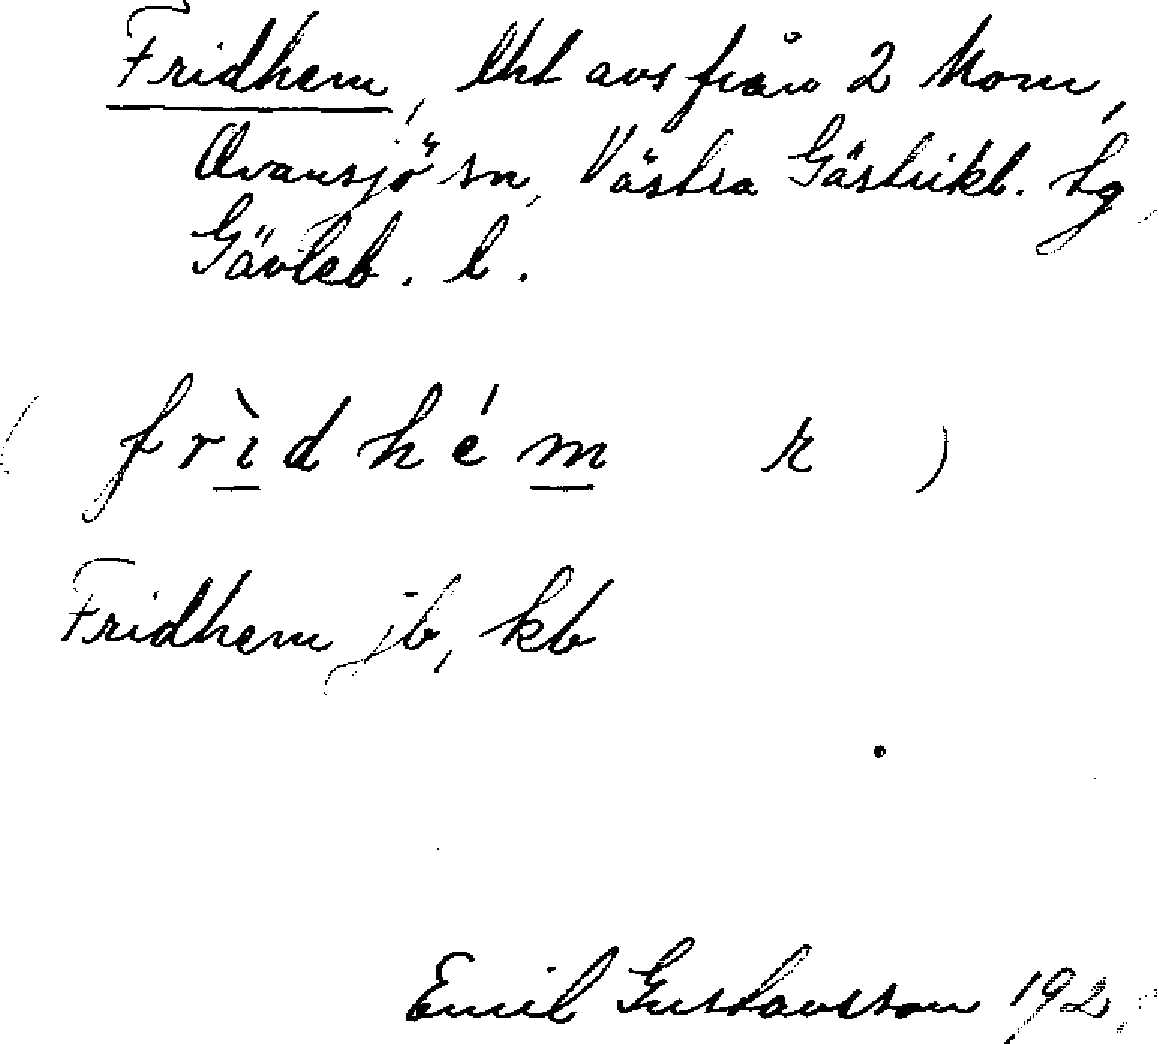 Fridhem, lht avs från 2 Mom,
Ovansjö sn, Västra Gästrikl. tg
Gävleb. l.
( frìdhém r )
Fridhem jb, kb
Emil Gustavsson 192